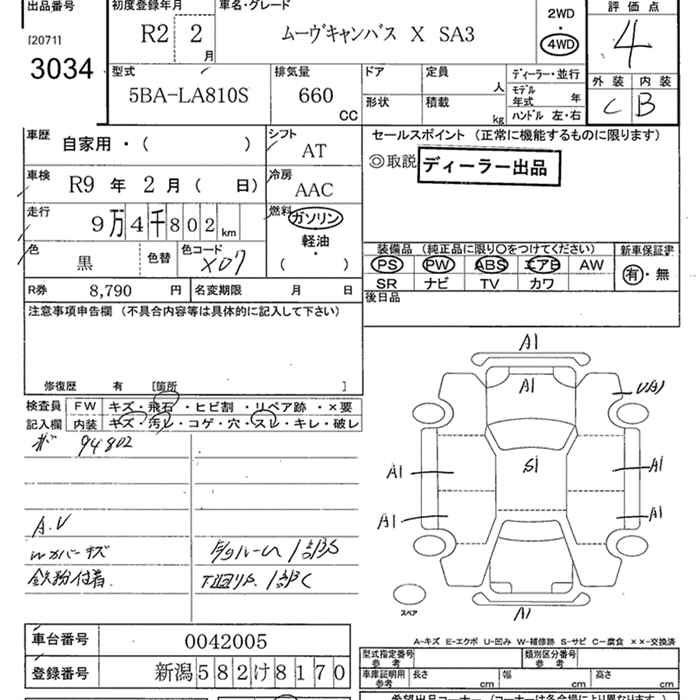 出品番号
[2071]
3034
初度登録年月
R2 2
月
車名・グレード
ムーヴキャンバス X SA3
2WD
・
4WD
評価点
4
外装 内装
C B
型式
5BA-LA810S
排気量
660
CC
ドア
形状
定員
人
積載
kg
ディーラー・並行
モデル
年式 年
ハンドル 左・右
車歴
自家用・( )
シフト
AT
車検
R9 年 2 月 ( 日)
冷房
AAC
走行
9万4千802km
燃料
ガソリン
・
軽油
・
( )
色
黒
色替
色コード
X07
R券 8,790 円
名変期限 月 日
セールスポイント (正常に機能するものに限ります)
◎取説 ディーラー出品
装備品 (純正品に限り〇をつけてください)
PS PW ABS エアB AW
SR ナビ TV カワ
新車保証書
有・無
後日品
注意事項申告欄 (不具合内容等は具体的に記入して下さい)
修復歴 有 [箇所 ]
検査員 FW キズ・飛石・ヒビ割・リペア跡・×要
記入欄 内装 キズ・汚レ・コゲ・穴・スレ・キレ・破レ
94802
A.V
Wカバーキズ
鉄粉付着
下回りP.1部C
A1
A1
U(A)
A1
S1
A1
A1
A1
A1
スペア
A-キズ E-エクボ U-凹み W-補修跡 S-サビ C-腐食 ××-交換済
車台番号 0042005
登録番号 新潟582け8170
型式指定番号
参考
類別区分番号
参考
車庫証明用
参考
長さ cm
幅 cm
高さ cm